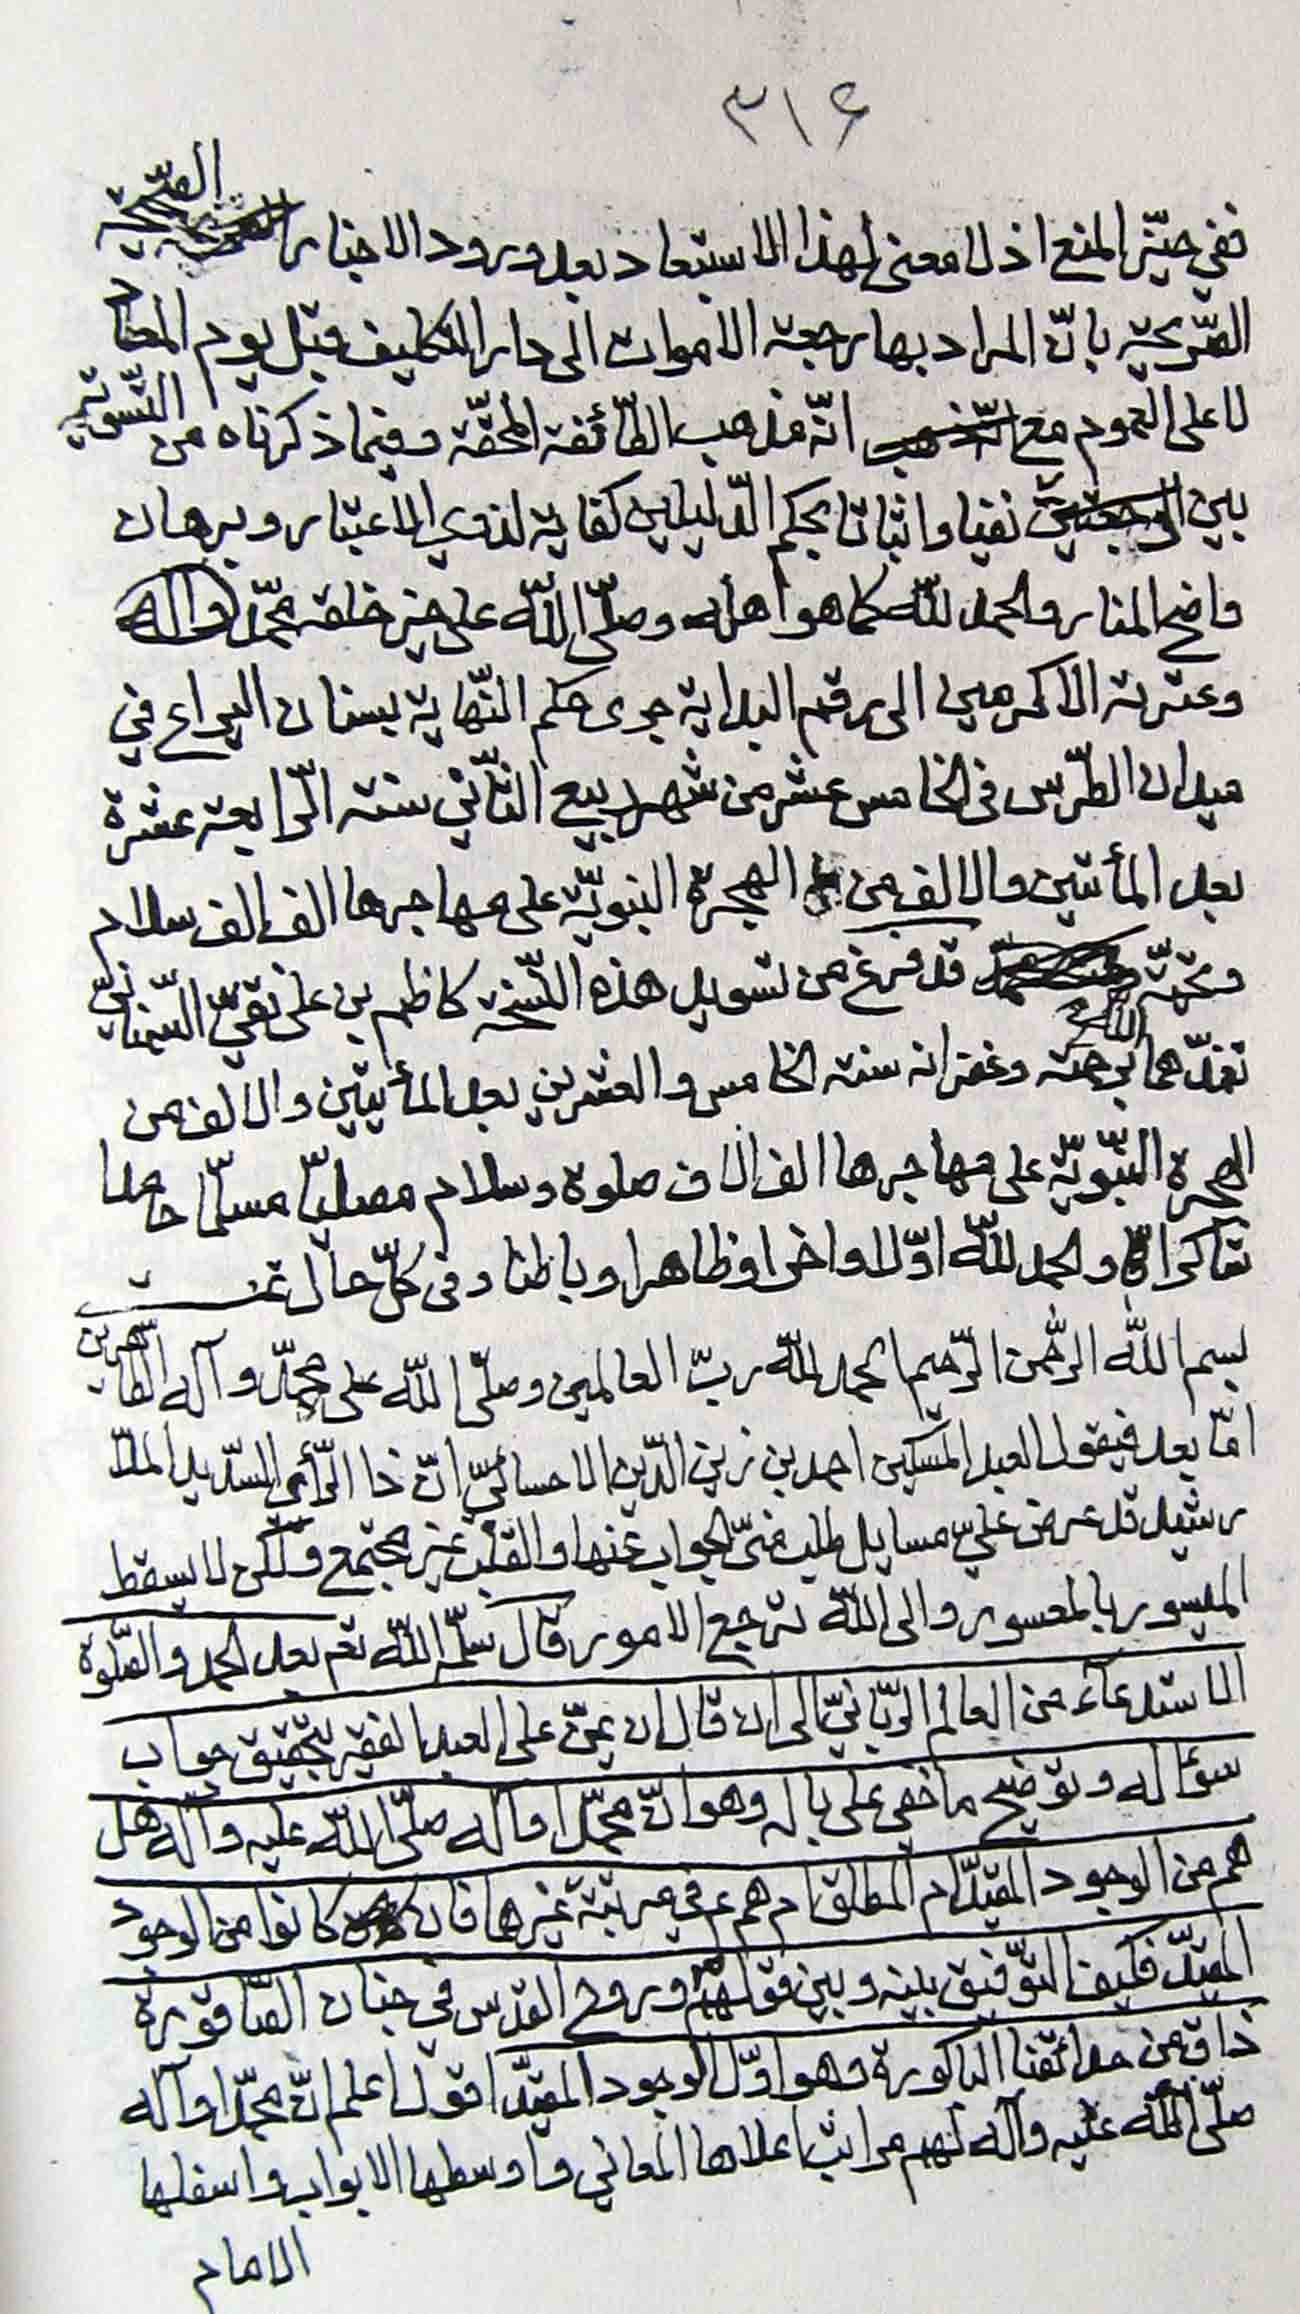 ٣١٤
ففي حيّز المنع اذ لا معنى لهذا الاستبعاد بعد ورود الاخبار الصّحيحة
الصّريحة بانّ المراد بها رجعة الاموات الى دار التكليف قبل يوم المعاد
لا على العموم مع انّه مذهب الطّائفة المحقّة وفيما ذكرناه من التّسوية
بين نفيا واثباتا بحكم الدّليلين كفاية لذوي الاعتبار وبرهان
واضح المنار والحمد للّه كما هو اهله وصلّى اللّه على خير خلقه محمّد واله
وعترته الاكرمين الى رقم البداية جرى حكم النّهاية بسنان اليراع في
ميدان الطّرس في الخامس عشر من شهر ربيع الثّاني سنة الرّابعة عشرة
بعد المأتين والالف من الهجرة النبويّة على مهاجرها الف الف سلام
وتحيّة قد فرغ من تسويد هذه النّسخة كاظم بن على نقيّ السّمناني
تغمّدهما اللّه برحمته وغفرانه سنة الخامس والعشرين بعد المأتين والالف من
الهجرة النّبويّة على مهاجرها الف الاف صلوة وسلام مصليّا مسلّما حامدا
شاكرا والحمد للّه اوّلا واخرا وظاهرا وباطنا وفي كلّ حال تمت
بسم اللّه الرّحمن الرّحيم الحمد للّه ربّ العالمين وصلّى اللّه على محمّد وآله الطّاهرين
امّا بعد فيقول العبد المسكين احمد بن زين الدّين الاحسائيّ انّ ذا الرّأي السّديد الملّا
رشيد قد عرض عليّ مسايل طلب منّي الجواب عنها والقلب غير مجتمع ولكن لا يسقط
الميسور بالمعسور والى اللّه ترجع الامور قال سلّمه اللّه تعم بعد الحمد والصّلوة
الاستدعاء من العالم الرّبّانيّ الى ان قال ان يمنّ على العبد الفقير بتحقيق جواب
سؤاله وتوضيح ما خفي على باله وهو انّ محمّدا وآله صلّى اللّه عليه وآله هل
هم من الوجود المقيّد ام المطلق ام هم ع في مرتبة غيرها فان كانوا من الوجود
المقيّد فكيف التّوفيق بينه وبين قولهم وروح القدس في جنان الصّاقورة
ذاق من حدائقنا الباكورة وهو اوّل الوجود المقيّد اقول اعلم انّ محمّدا وآله
صلّى اللّه عليه وآله لهم مراتب اعلاها المعاني واوسطها الابواب واسفلها
الامام